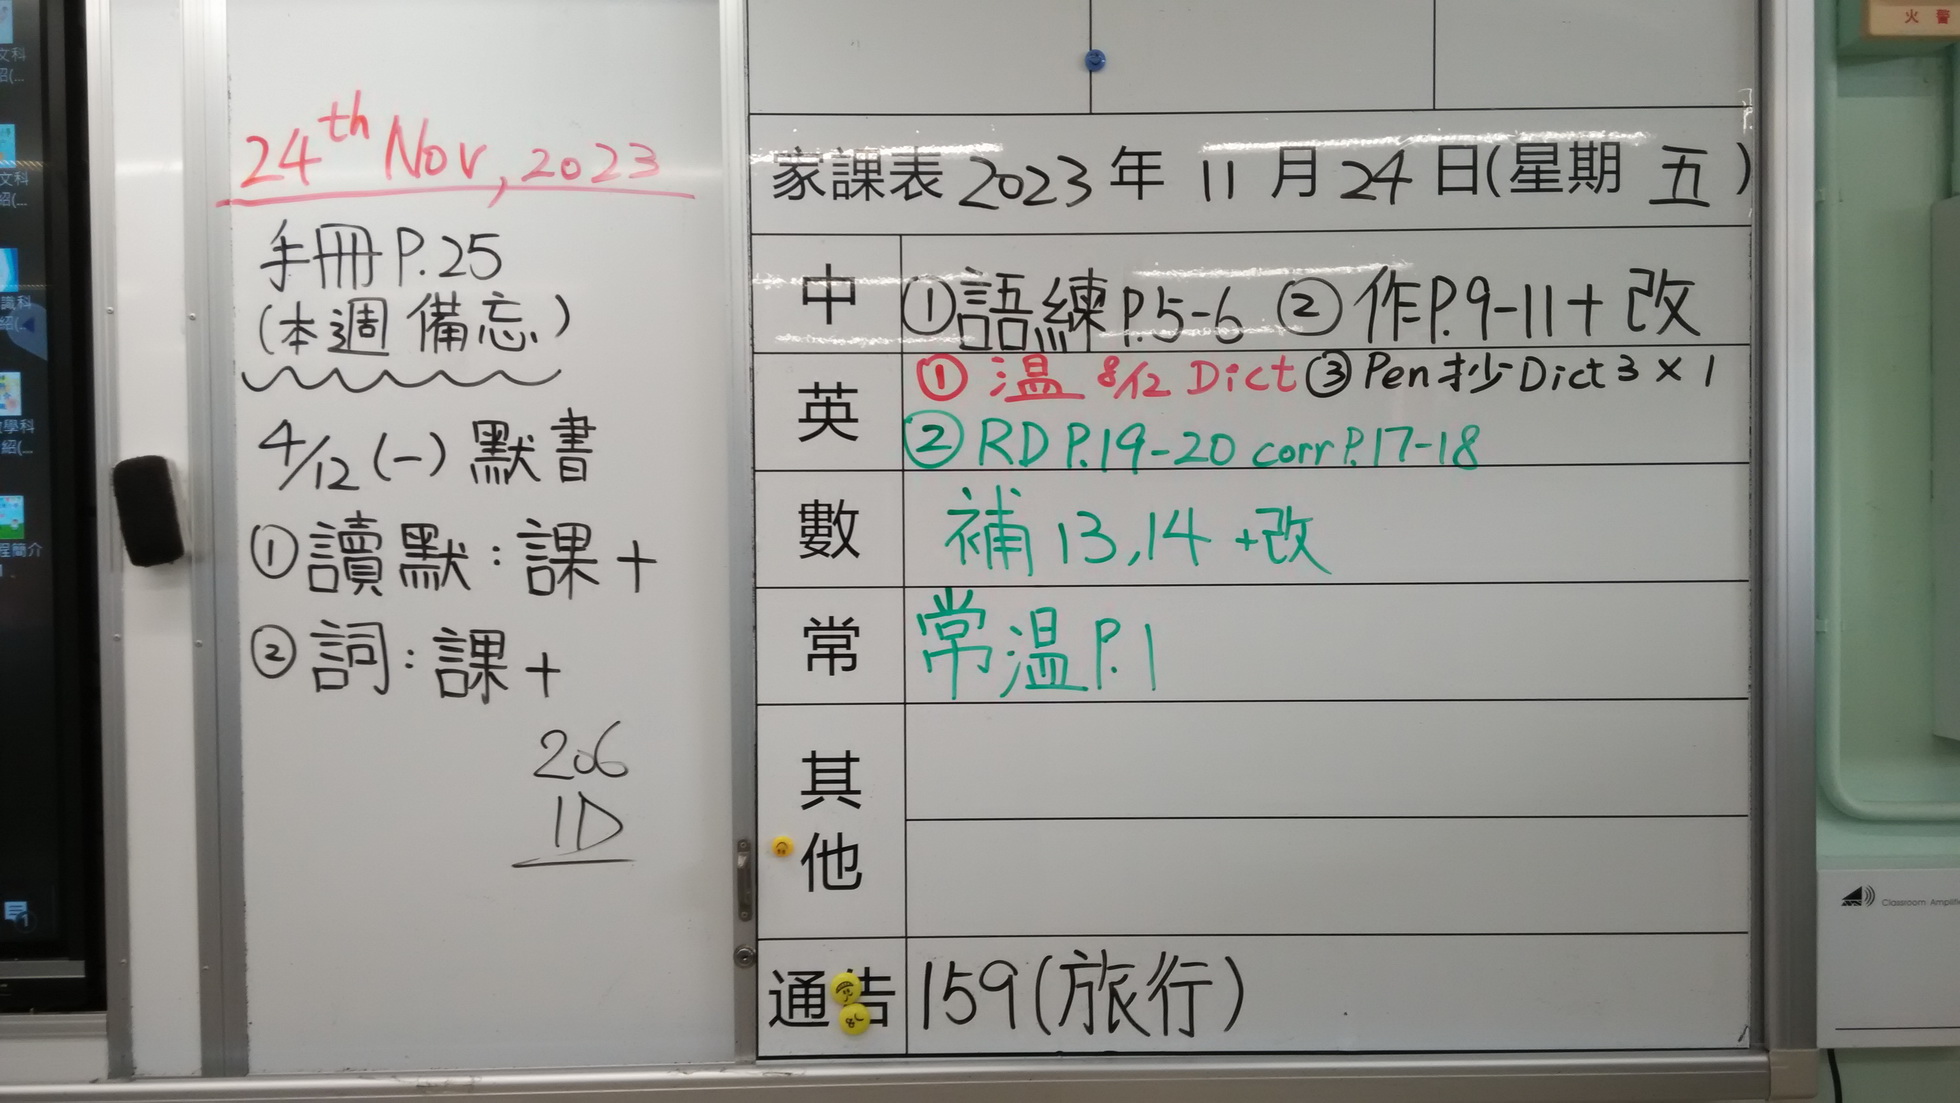 24th Nov, 2023
手冊 P.25
(本週備忘)
4/12 (一) 默書
① 讀默：課十
② 詞：課十
206
1D
家課表 2023 年 11 月 24 日(星期 五)
中 ①語練 P.5-6 ②作P.9-11+改
英 ① 温 8/12 Dict ③ Pen抄 Dict 3 × 1
② RD P.19-20 corr P.17-18
數 補 13,14 +改
常 常温 P.1
其他
通告 159(旅行)
火警
Classroom Amplifi
文科
紹(...
文科
紹(...
識科
紹(...
數學科
紹(...
程簡介